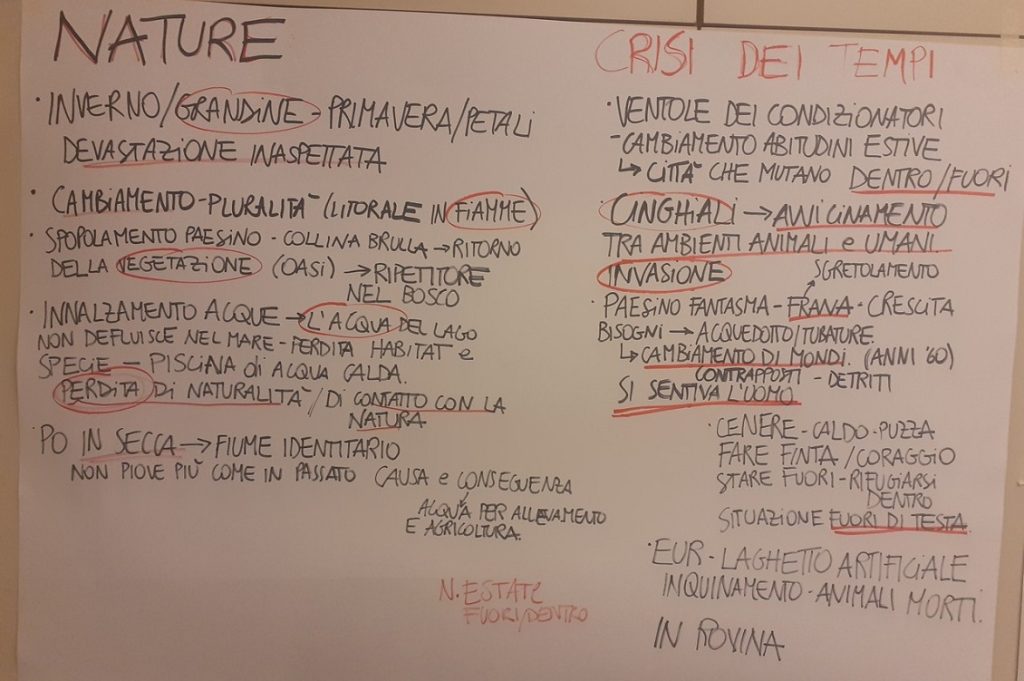 NATURE
• INVERNO/GRANDINE - PRIMAVERA/PETALI
DEVASTAZIONE INASPETTATA
• CAMBIAMENTO - PLURALITÀ (LITORALE IN FIAMME)
• SPOPOLAMENTO PAESINO - COLLINA BRULLA → RITORNO
DELLA VEGETAZIONE (OASI) → RIPETITORE
NEL BOSCO
• INNALZAMENTO ACQUE → L'ACQUA DEL LAGO
NON DEFLUISCE NEL MARE - PERDITA HABITAT e
SPECIE — PISCINA di ACQUA CALDA.
PERDITA DI NATURALITÀ / DI CONTATTO CON LA
NATURA
PO IN SECCA → FIUME IDENTITARIO
NON PIOVE PIÙ COME IN PASSATO CAUSA e CONSEGUENZA
ACQUA PER ALLEVAMENTO
E AGRICOLTURA.
N. ESTATE
FUORI/DENTRO
CRISI DEI TEMPI
• VENTOLE DEI CONDIZIONATORI
- CAMBIAMENTO ABITUDINI ESTIVE
↳ CITTÀ CHE MUTANO DENTRO/FUORI
• CINGHIALI → AVVICINAMENTO
TRA AMBIENTI ANIMALI e UMANI.
INVASIONE
SGRETOLAMENTO
• PAESINO FANTASMA - FRANA - CRESCITA
BISOGNI → ACQUEDOTTO/TUBATURE.
↳ CAMBIAMENTO DI MONDI. (ANNI '60)
CONTRAPPOSTI - DETRITI
SI SENTIVA L'UOMO
• CENERE - CALDO - PUZZA
FARE FINTA / CORAGGIO
STARE FUORI - RIFUGIARSI
DENTRO
SITUAZIONE FUORI DI TESTA
• EUR - LAGHETTO ARTIFICIALE
INQUINAMENTO - ANIMALI MORTI.
IN ROVINA